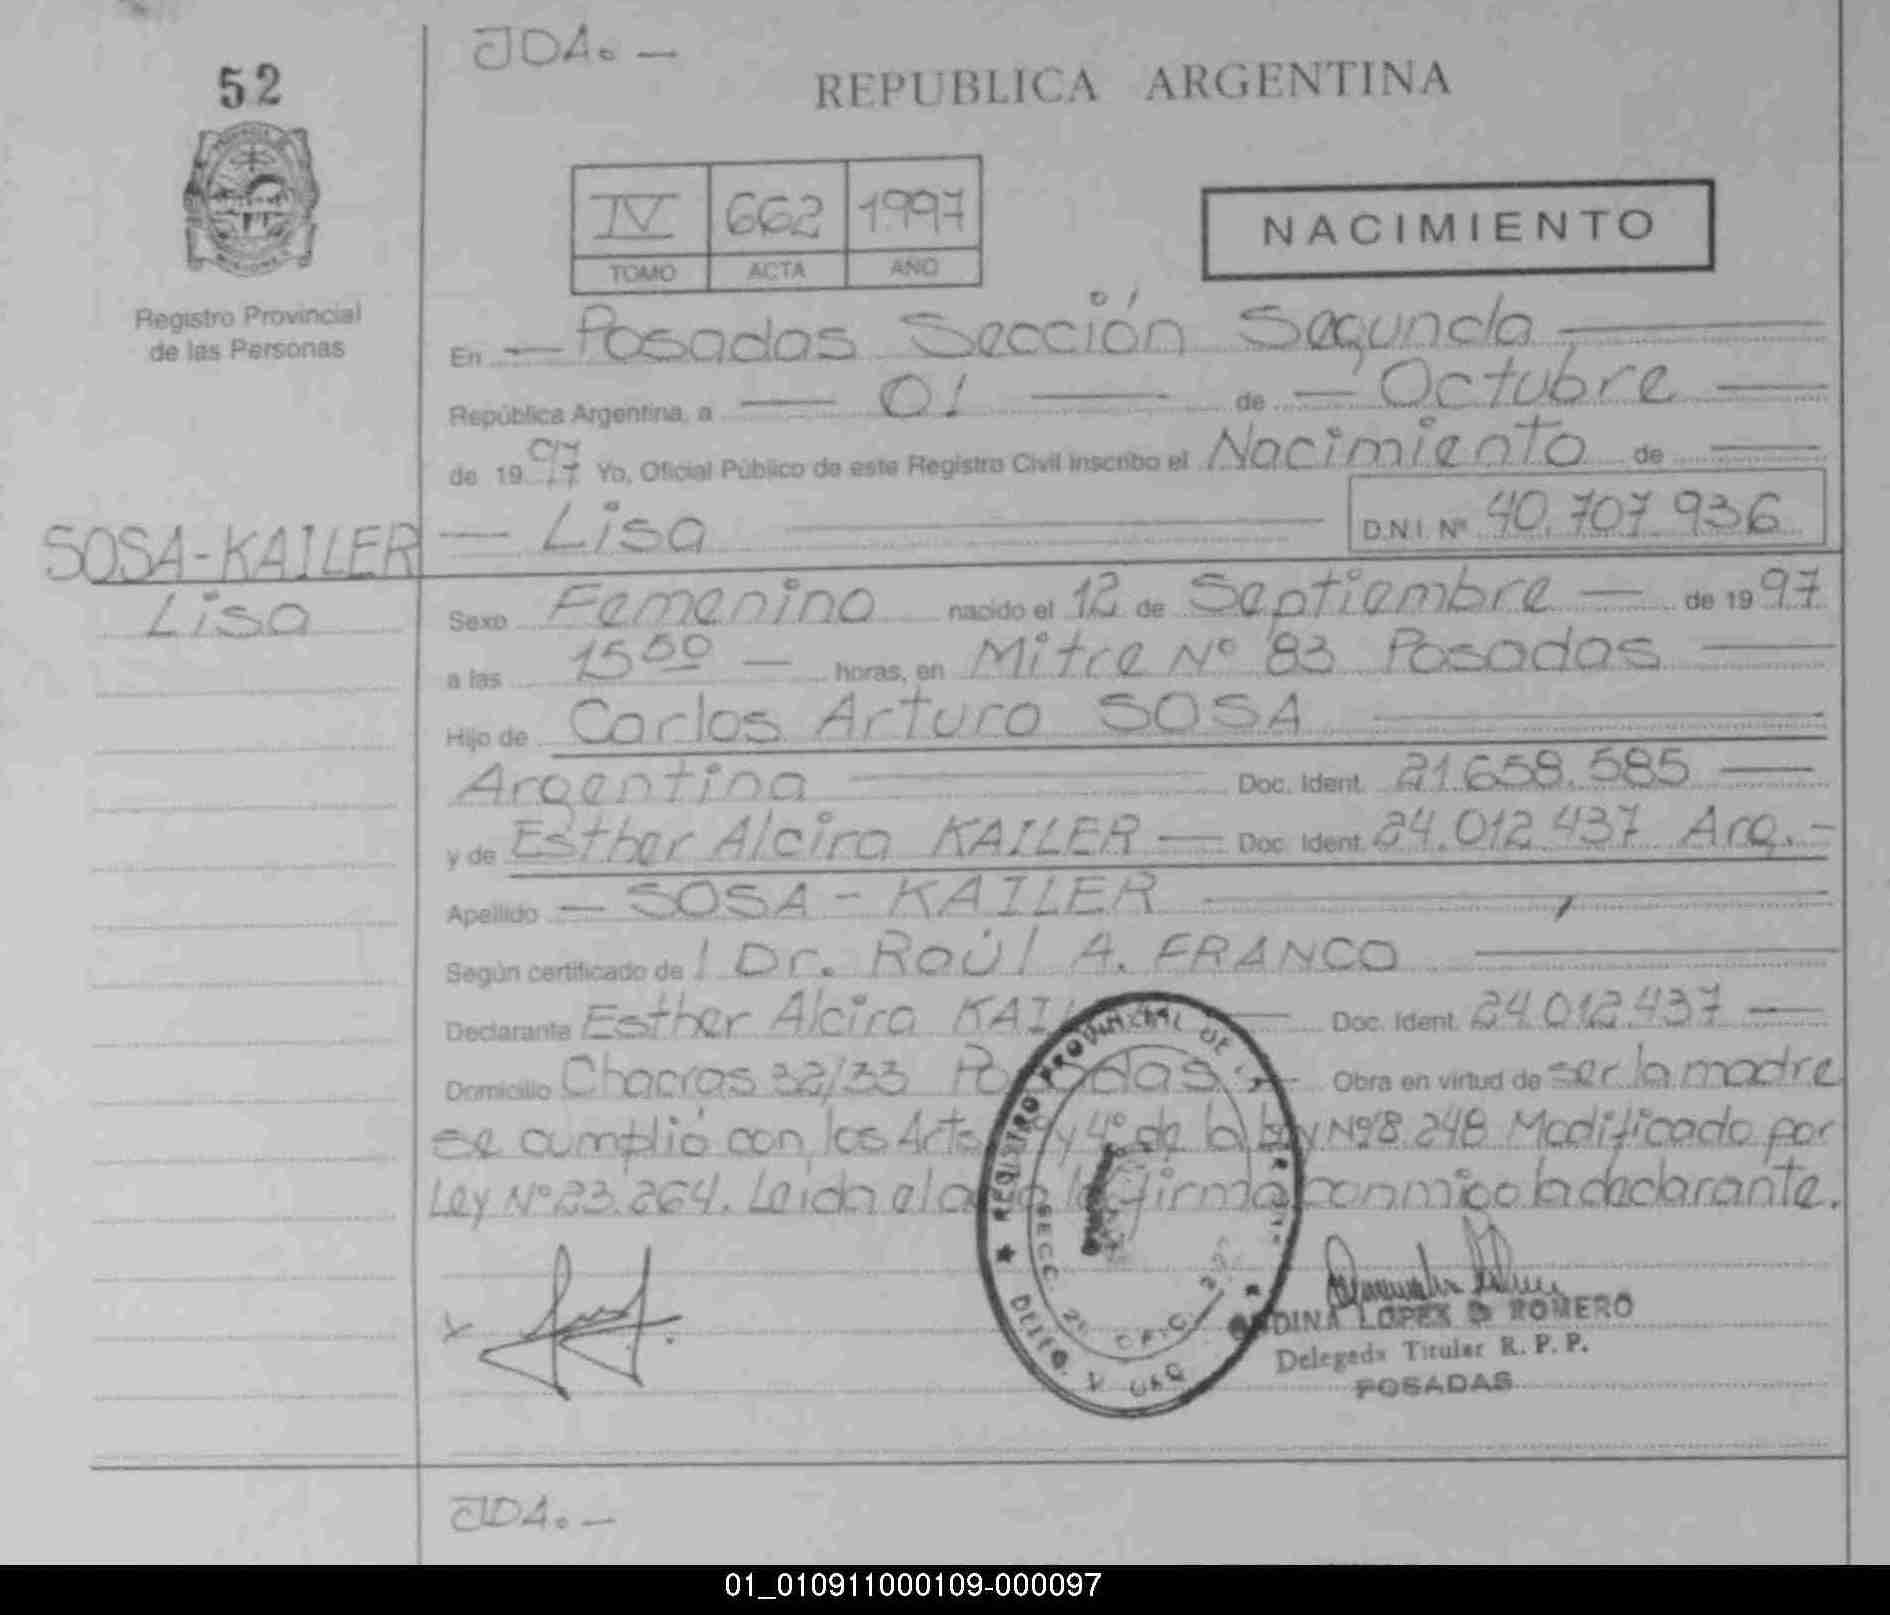 52
JDA. —
REPUBLICA ARGENTINA
IV 662 1997
TOMO ACTA AÑO
NACIMIENTO
Registro Provincial
de las Personas
En — Posadas Sección Segunda —
República Argentina, a — 01 — de — Octubre —
de 1997 Yo, Oficial Público de este Registro Civil inscribo el Nacimiento de —
— Lisa — D.N.I. Nº 40.707.936
SOSA-KAILER
Lisa
Sexo Femenino nacido el 12 de Septiembre — de 1997
a las 15⁵⁰ — horas, en Mitre Nº 83 Posadas —
Hijo de Carlos Arturo SOSA —
Argentina — Doc. Ident. 21.658.585 —
y de Esther Alcira KAILER — Doc. Ident. 24.012.437 Arg. -
Apellido — SOSA - KAILER —
Según certificado de l Dr. Raúl A. FRANCO —
Declarante Esther Alcira KAI — Doc. Ident. 24.012.437 —
Domicilio Chacras 32/33 Posadas. — Obra en virtud de ser la madre
se cumplió con los Arts y 4º de la Ley Nº 18.248 Modificado por
Ley Nº 23.264. Leída el acta la firma conmigo la declarante.
★ REGISTRO PROVINCIAL DE
SECC. 2ª
POSADAS
DINA LOPEZ D ROMERO
Delegada Titular R. P. P.
POSADAS
JDA. —
01_010911000109-000097